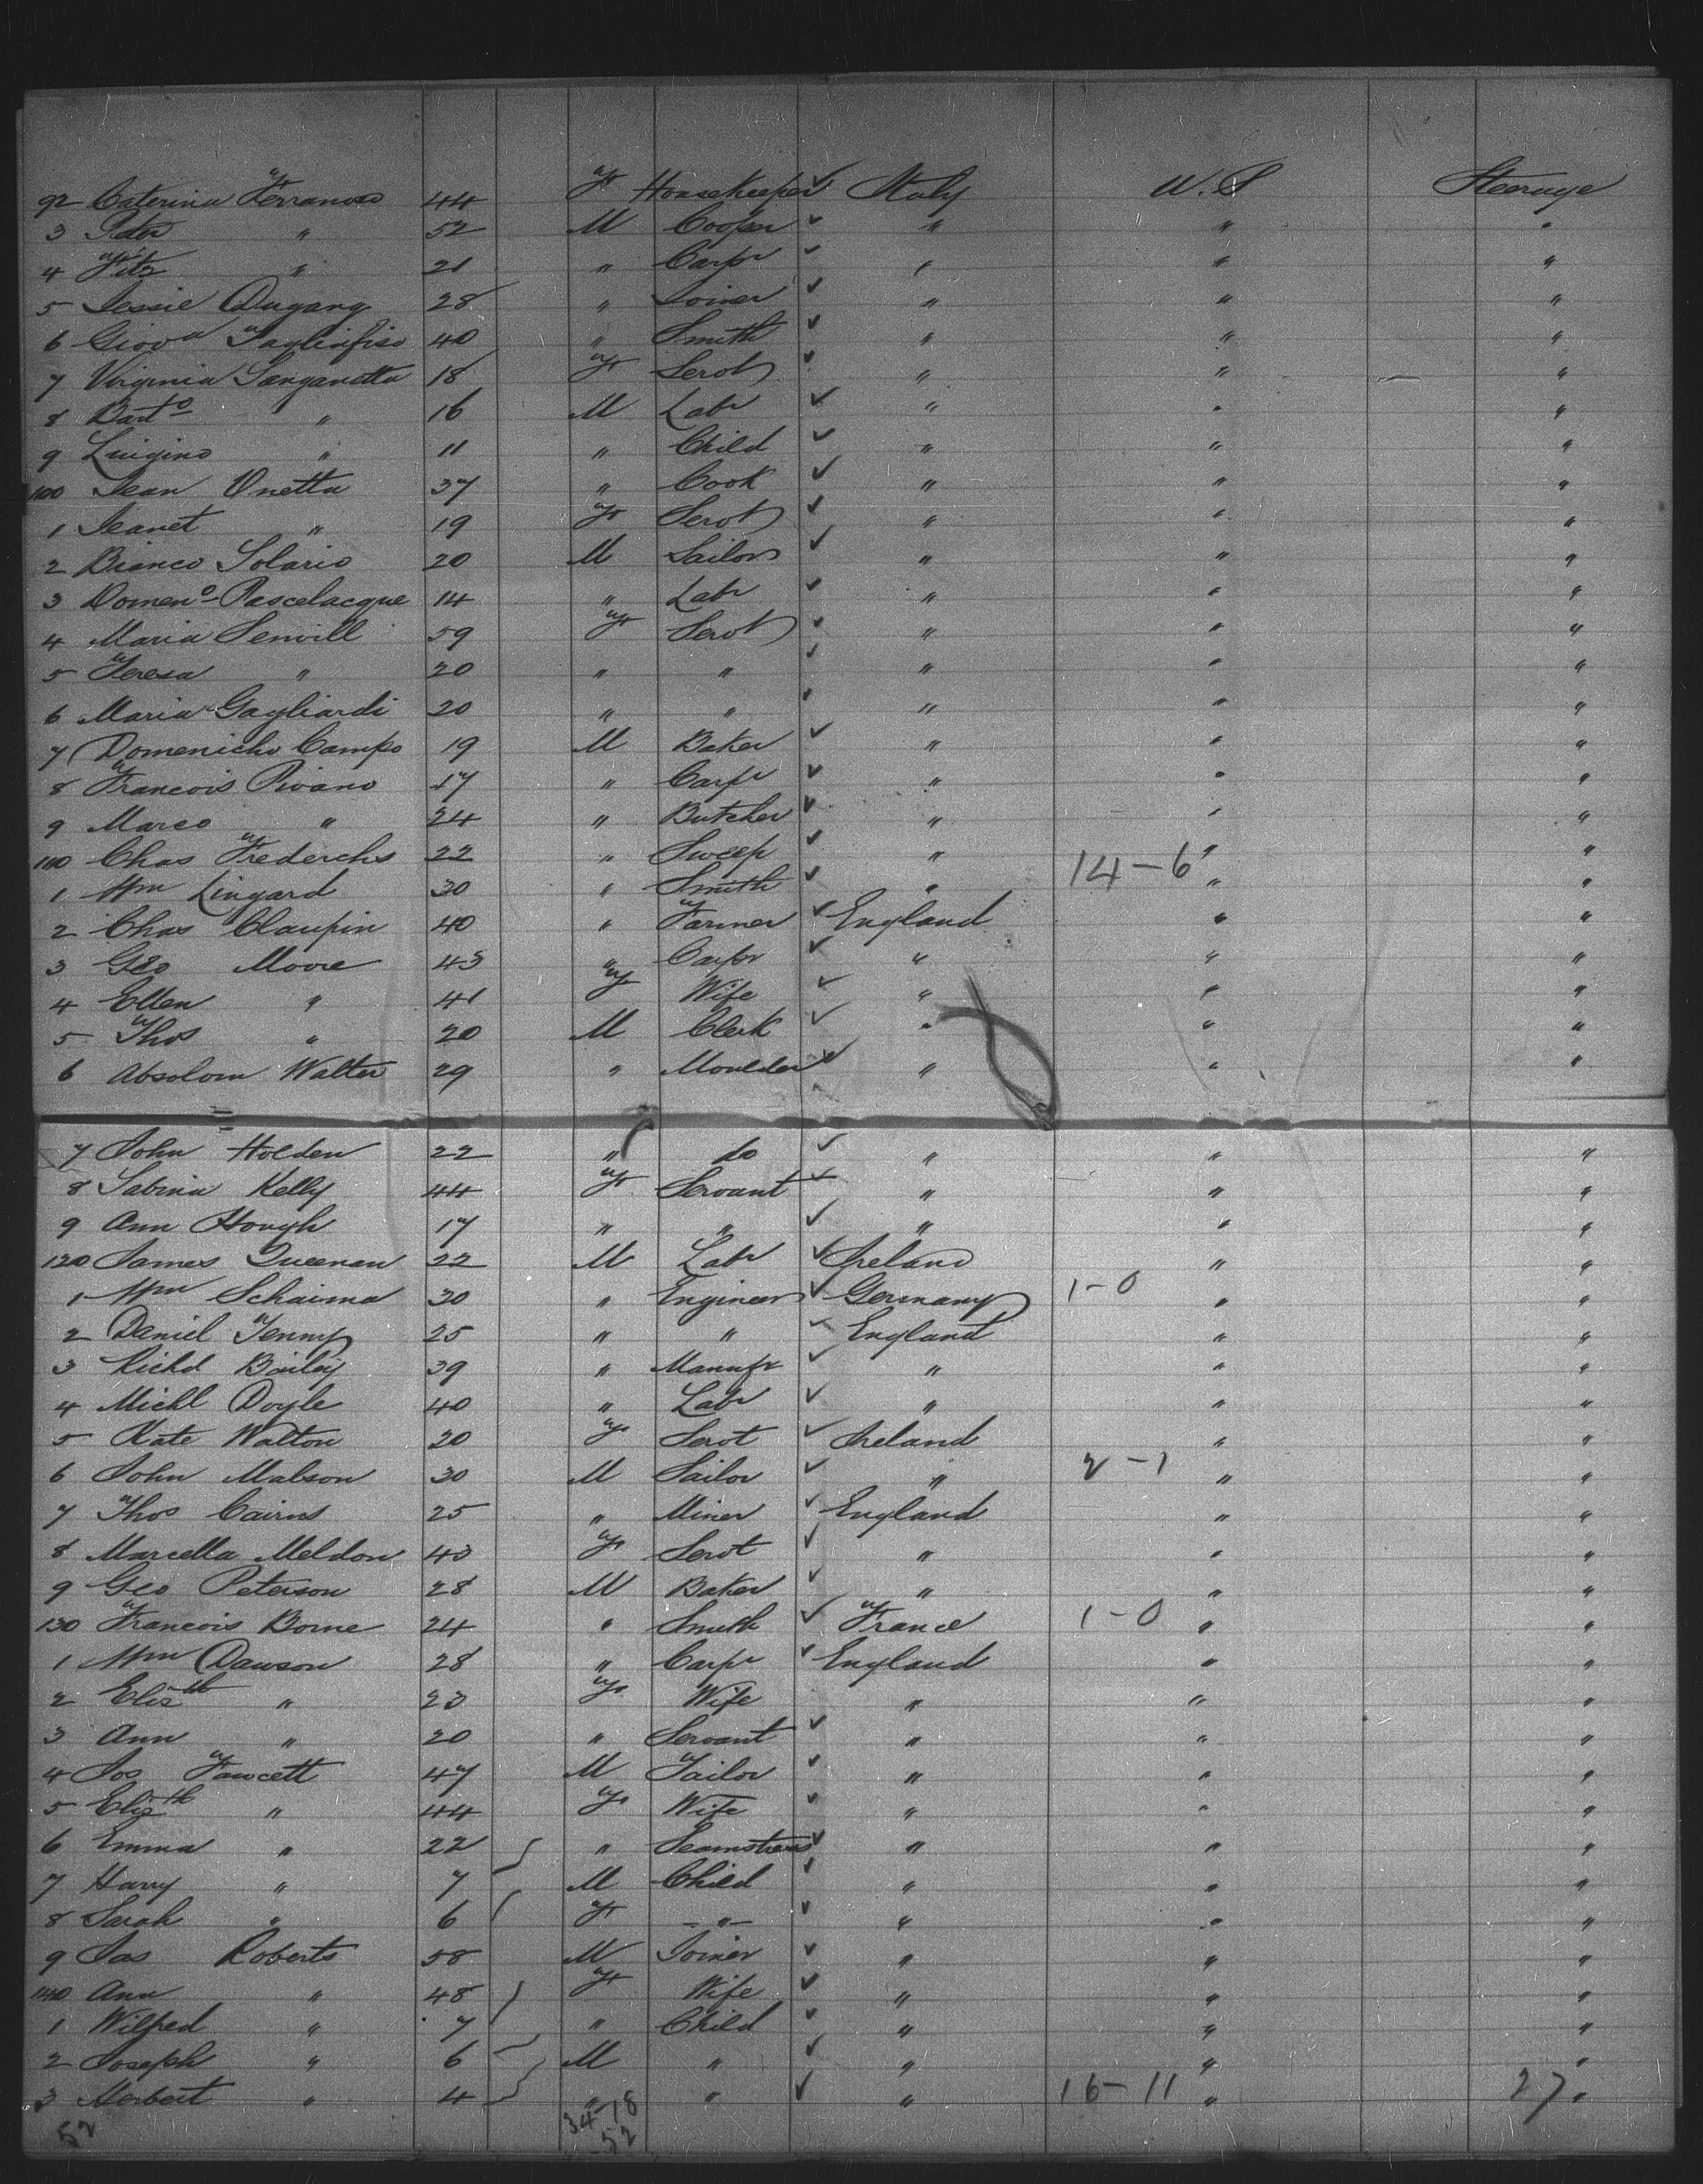 92 Caterina Ferranova 44 F Housekeeper ✓ Italy U.S Steerage
3 Peter " 52 M Cooper ✓ " " "
4 Fitz " 21 " Carpr ✓ " " "
5 Jessie Dugang 28 " Joiner ✓ " " "
6 Giova Tagliafiso 40 " Smith ✓ " " "
7 Virginia Sanganetta 18 F Servt ✓ " " "
8 Barto " 16 M Labr ✓ " " "
9 Luigino " 11 " Child ✓ " " "
100 Jean Onetta 37 " Cook ✓ " " "
1 Jeanet " 19 F Servt ✓ " " "
2 Bianco Solario 20 M Sailor ✓ " " "
3 Domeno Pascelacque 14 " Labr ✓ " " "
4 Maria Senvill 59 F Servt ✓ " " "
5 Teresa " 20 " " ✓ " " "
6 Maria Gagliardi 20 " " ✓ " " "
7 Domenicho Campo 19 M Baker ✓ " " "
8 Francois Rivano 17 " Carpr ✓ " " "
9 Marco " 24 " Butcher ✓ " " "
110 Chas Frederchs 22 " Sweep ✓ " 14-6 " "
1 Wm Lingard 30 " Smith ✓ " " "
2 Chas Claupin 40 " Farmer ✓ England " "
3 Geo Moore 43 " Carpr ✓ " " "
4 Ellen " 41 F Wife ✓ " " "
5 Thos " 20 M Clerk ✓ " " "
6 Absolom Walter 29 " Moulder ✓ " " "
7 John Holden 22 " do ✓ " " "
8 Sabina Kelly 44 F Servant ✓ " " "
9 Ann Hough 17 " " ✓ " " "
120 James Queenan 22 M Labr ✓ Ireland " "
1 Wm Schairma 30 " Engineer ✓ Germany 1-0 " "
2 Daniel Tenny 25 " " ✓ England " "
3 Richd Bailey 39 " Manufr ✓ " " "
4 Michl Doyle 40 " Labr ✓ " " "
5 Kate Walton 20 F Servt ✓ Ireland " "
6 John Malson 30 M Sailor ✓ " 2-1 " "
7 Thos Cairns 25 " Miner ✓ England " "
8 Marcella Meldon 43 F Servt ✓ " " "
9 Geo Peterson 28 M Baker ✓ " " "
130 Francois Borne 24 " Smith ✓ France 1-0 " "
1 Wm Dawson 28 " Carpr ✓ England " "
2 Elizth " 23 F Wife " " "
3 Ann " 20 " Servant ✓ " " "
4 Jos Fawcett 47 M Tailor ✓ " " "
5 Elizth " 44 F Wife ✓ " " "
6 Emma " 22 " Seamstress ✓ " " "
7 Harry " 7 M Child ✓ " " "
8 Sarah " 6 F " ✓ " " "
9 Jas Roberts 58 M Joiner ✓ " " "
140 Ann " 48 F Wife ✓ " " "
1 Wilfred " 7 " Child ✓ " " "
2 Joseph " 6 M " ✓ " " "
3 Herbert " 4 " " ✓ " 16-11 " 27 "
52 34-18
52